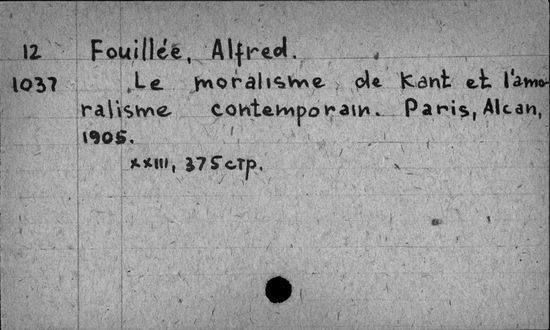 12 Fouillée, Alfred.
1037 Le moralisme de Kant et l'amo-
ralisme contemporain. Paris, Alcan,
1905.
XXIII, 375 стр.